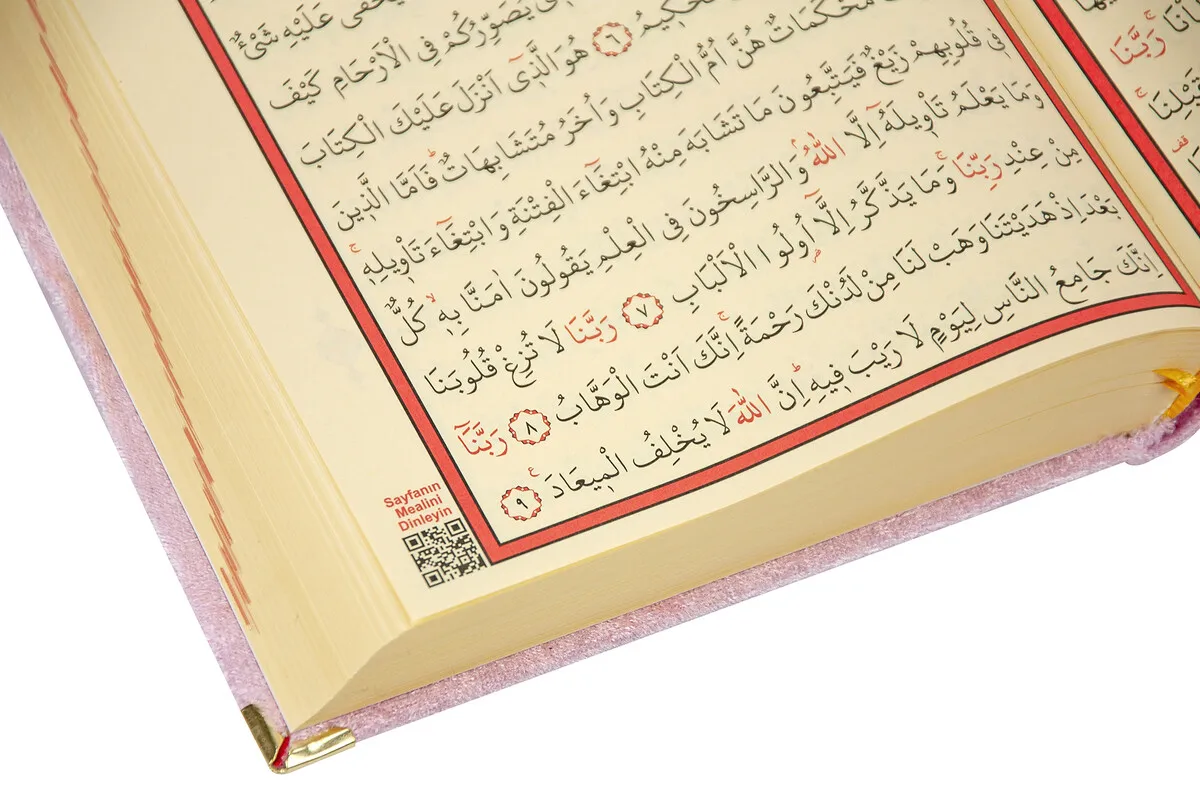 يَخْفٰى عَلَيْهِ شَيْءٌ
يُصَوِّرُكُمْ فِي الْاَرْحَامِ كَيْفَ
الْحَكٖيمُ ٦ هُوَ الَّذٖٓي اَنْزَلَ عَلَيْكَ الْكِتَابَ
مُحْكَمَاتٌ هُنَّ اُمُّ الْكِتَابِ وَاُخَرُ مُتَشَابِهَاتٌؕ فَاَمَّا الَّذٖينَ
فٖي قُلُوبِهِمْ زَيْغٌ فَيَتَّبِعُونَ مَا تَشَابَهَ مِنْهُ ابْتِغَٓاءَ الْفِتْنَةِ وَابْتِغَٓاءَ تَأْوٖيلِهٖۚ
وَمَا يَعْلَمُ تَأْوٖيلَهُٓ اِلَّا اللّٰهُۘ وَالرَّاسِخُونَ فِي الْعِلْمِ يَقُولُونَ اٰمَنَّا بِهٖۙ كُلٌّ
مِنْ عِنْدِ رَبِّنَاۚ وَمَا يَذَّكَّرُ اِلَّٓا اُولُوا الْاَلْبَابِ ٧ رَبَّنَا لَا تُزِغْ قُلُوبَنَا
بَعْدَ اِذْ هَدَيْتَنَا وَهَبْ لَنَا مِنْ لَدُنْكَ رَحْمَةًۚ اِنَّكَ اَنْتَ الْوَهَّابُ ٨ رَبَّنَٓا
اِنَّكَ جَامِعُ النَّاسِ لِيَوْمٍ لَا رَيْبَ فٖيهِؕ اِنَّ اللّٰهَ لَا يُخْلِفُ الْمٖيعَادَ ٩
Sayfanın
Mealini
Dinleyin
رَبَّنَا